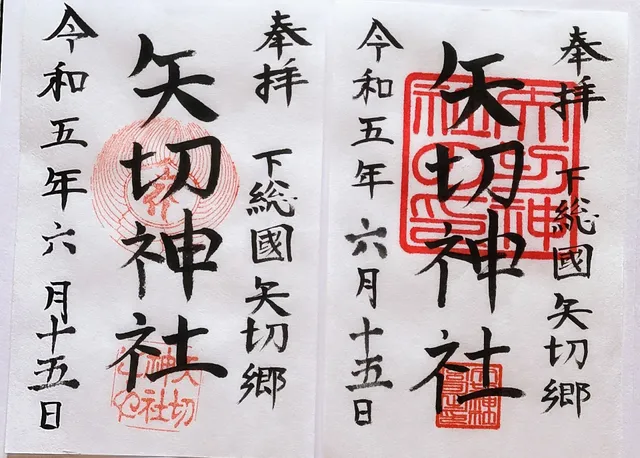 奉拝
下総國矢切郷
矢切神社
矢切神
令和五年六月十五日
奉拝
下総國矢切郷
矢切神社
矢切
神社
令和五年六月十五日